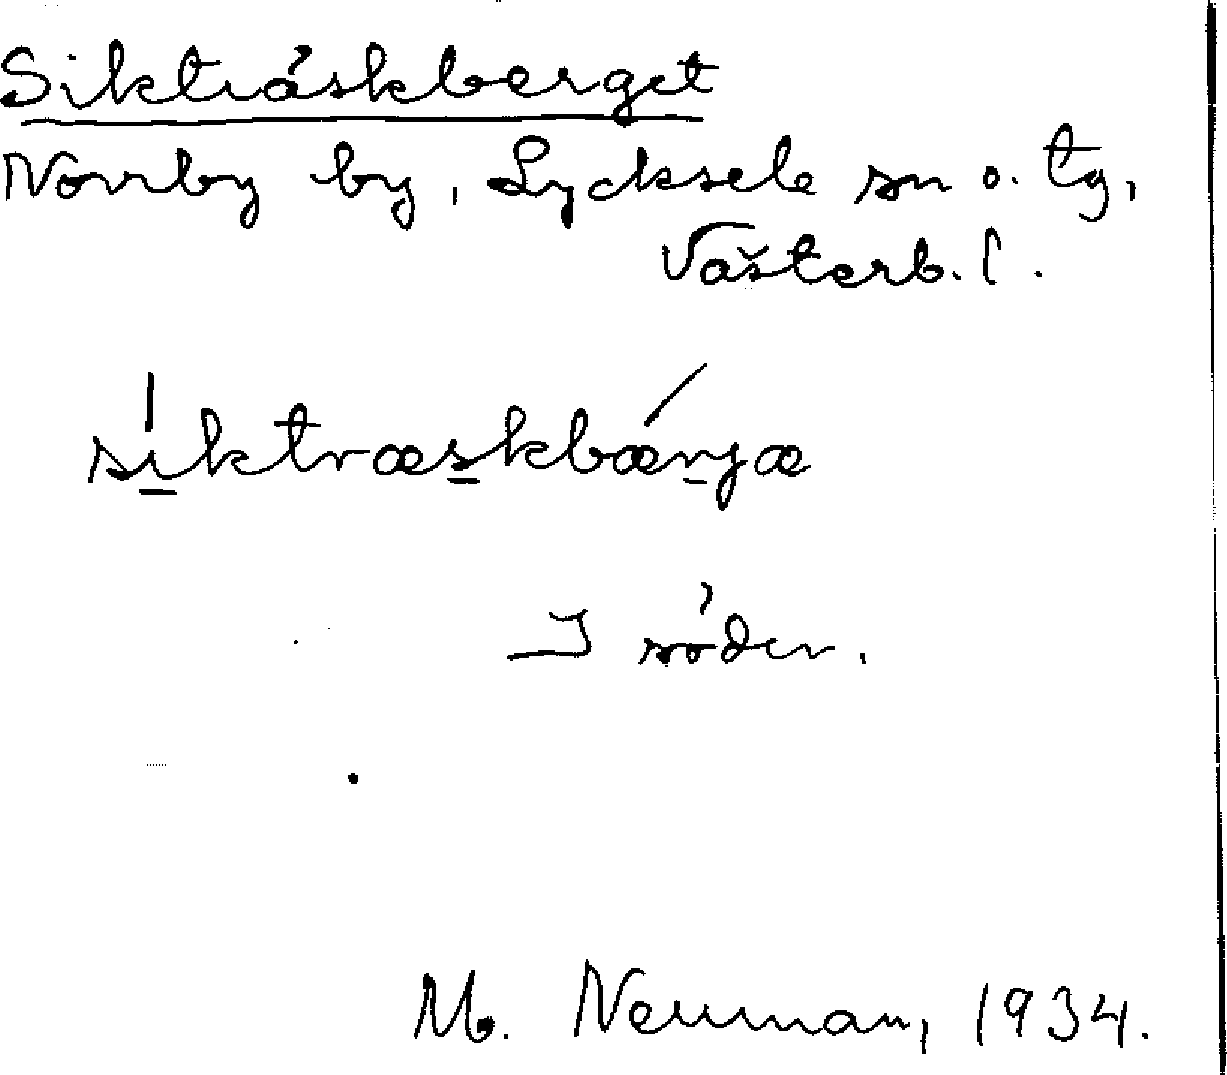 Sikträskberget
Norrby by, Lycksele sn o. tg,
Västerb. l.
siktræskbærjæ
I söder.
M. Neuman, 1934.